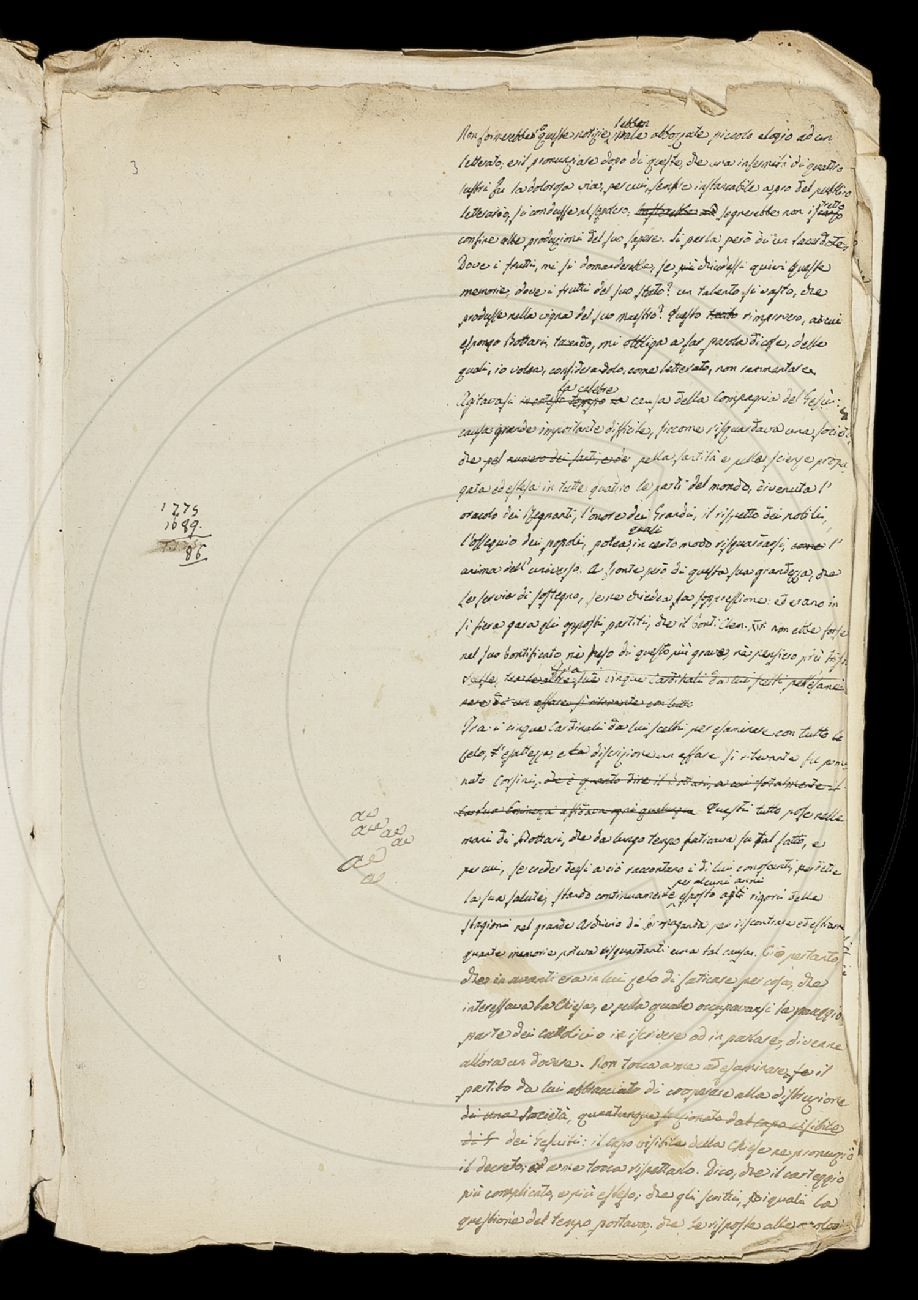 3
lebben
Non formerebber queste notizie, male abbozzate piccolo elogio ad un
letterato, e il pronunziare dopo di queste, che una infermità di quattro
lustri fu la dolorosa via, per cui, sempre instancabile a pro del pubblico
stretto
letterario, si condusse al sepolcro, segnerebbe non
confine alle produzioni del suo sapere. Si parla però di un Sacerdote.
Dove i frutti, mi si domanderebbe, se più chiudessi quivi queste
memorie, dove i frutti del suo stato? un talento sì vasto, che
produsse nella vigna del suo maestro? Questo rimprovero, a cui
espongo Bottari, tacendo, mi obbliga a far parola di cose, delle
quali, io volea, considerandolo come letterato, non rammentare.
la celebre
Agitavasi causa della Compagnia del Gesù:
causa grande importante difficile, siccome risguardava una società,
che pel numero dei santi, e de pella santità e pelle scienze propa-
gata ed estesa in tutte quattro le parti del mondo, divenuta l'
oracolo dei Regnanti, l'onore dei Grandi, il rispetto dei nobili,
quasi
l'ossequio dei popoli, potea, in certo modo risguardarsi, come l'
anima dell'universo. A fronte però di questa sua grandezza, che
le servia di sostegno, se ne chiedea la soppressione: ed erano in
sì fiera gara gli opposti partiti, che il Pont. Clem. XIV non ebbe forse
nel suo Pontificato nè peso di questo più grave, nè pensiero più
Fra
cinque Cardinali da lui scelti per esami-
nare di un affare sì rilevante con tutto
Fra i cinque Cardinali da lui scelti per esaminare con tutto lo
zelo, l'esatezza, e la discrizione un affare sì rilevante fu nomi-
nato Corsini, Questi tutto pose nelle
mani di Bottari, che da lungo tempo faticava su tal fatto, e
per cui, se creder deesi a ciò raccontano i di lui conoscenti, perdette
per alcuni anni
la sua salute, stando continuamente esposto agli rigori delle
stagioni nel grande Archivio di Propaganda per riscontrare ed estrarre
quante memorie poteva risguardanti una tal causa. Ciò pertanto,
che in avanti era in lui zelo di faticare per cosa, che
interessava la Chiesa, e pella quale occupavansi la maggio
parte dei cattolici o in iscrivere od in parlare, divenne
allora un dovere. Non tocca a me ad esaminare, se il
partito da lui abbracciato di cooperare alla distruzione
di una Società, quantunque dal capo visibile
di dei Gesuiti: il capo visibile della Chiesa ne pronunziò
il decreto; ed a me tocca rispettarlo. Dico, che il carteggio
più complicato, e più esteso; che gli scritti, pe quali la
questione del tempo portava; che le risposte alle
1775
1689
86
ae
ae
ae
ae
ae
ae